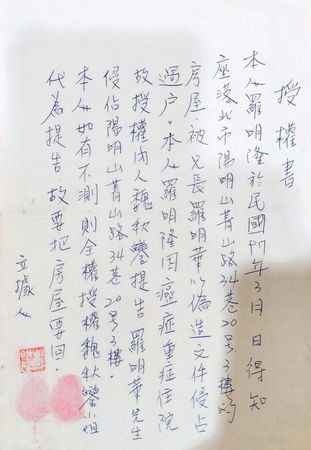 授權書
本人羅明隆於民國97年3月 日得知
座落北市陽明山菁山路34巷20号3樓的
房屋被兄長羅明華以偽造文件侵占
過户。本人羅明隆因癌症重症住院
故授權內人魏秋鑾提告羅明華先生
侵佔陽明山菁山路34巷20号3樓。
本人如有不測,則全權授權魏秋鑾小姐
代為提告故要把房屋要回。
立據人